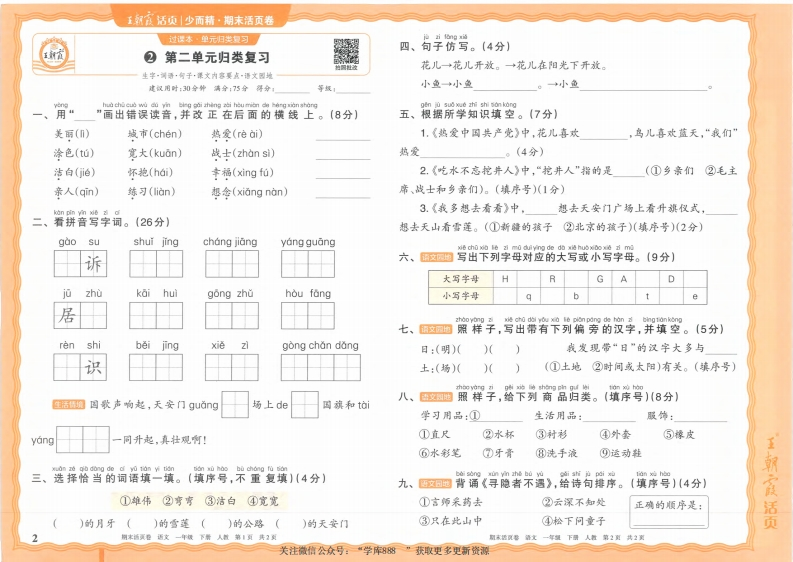 王朝霞活页 | 少而精·期末活页卷
王朝霞
过课本·单元归类复习
2 第二单元归类复习
拍照批改
生字·词语·句子·课文内容要点·语文园地
建议用时:30分钟 满分:75分 得分:______ 等级:______
yāng huà chū cuò wù dú yīn bìng gǎi zhèng zài hòu miàn de héng xiàn shàng
一、用“____”画出错误读音,并改正在后面的横线上。(8分)
美丽(lì) 城市(chén) 热爱(rè ài)
涂色(tú) 宽大(kuān) 战士(zhàn sì)
洁白(jié) 怀抱(hái) 幸福(xìng fú)
亲人(qīn) 练习(liàn) 想念(xiǎng nàn)
kàn pīn yīn xiě zì cí
二、看拼音写字词。(26分)
gào su shuǐ jīng cháng jiāng yáng guāng
诉
jū zhù kāi huì gōng zhǔ hòu fāng
居
rèn shi běi jīng xiě zì gòng chǎn dǎng
识
生活情境 国歌声响起,天安门 guǎng 场上 de 国旗和 tài
yáng 一同升起,真壮观啊!
xuǎn zé qià dàng de cí yǔ tián yi tián tián xù hào bú chóng fù tián
三、选择恰当的词语填一填。(填序号,不重复填)(4分)
①雄伟 ②弯弯 ③洁白 ④宽宽
( )的月牙 ( )的雪莲 ( )的公路 ( )的天安门
2
期末活页卷 语文 一年级 下册 人教 第1页 共2页
jù zi fǎng xiě
四、句子仿写。(4分)
花儿→花儿开放。→花儿在阳光下开放。
小鱼→小鱼______。→小鱼______。
gēn jù suǒ xué zhī shi tián kòng
五、根据所学知识填空。(7分)
1.《热爱中国共产党》中,花儿喜欢______,鸟儿喜欢蓝天,“我们”
热爱______。(4分)
2.《吃水不忘挖井人》中,“挖井人”指的是______(①乡亲们 ②毛主
席、战士和乡亲们)。(填序号)(1分)
3.《我多想去看看》中,______想去天安门广场上看升旗仪式,______
想去天山看雪莲。(①新疆的孩子 ②北京的孩子)(填序号)(2分)
xiě chū xià liè zì mǔ duì yìng de dà xiě huò xiǎo xiě zì mǔ
六、语文园地 写出下列字母对应的大写或小写字母。(9分)
大写字母 H R G A D
小写字母 q b t e
zhào yàng zi xiě chū dài yǒu xià liè piān páng de hàn zì bìng tián kòng
七、语文园地 照样子,写出带有下列偏旁的汉字,并填空。(5分)
日:(明)( )( ) 我发现带“日”的汉字大多与______
土:(场)( )( ) (①土地 ②时间或太阳)有关。(填序号)
zhào yàng zi gěi xià liè shāng pǐn guī lèi tián xù hào
八、语文园地 照样子,给下列商品归类。(填序号)(8分)
学习用品:①______ 生活用品:______ 服饰:______
①直尺 ②水杯 ③衬衫 ④外套 ⑤橡皮
⑥水彩笔 ⑦牙膏 ⑧洗手液 ⑨运动鞋
bèi sòng xún yǐn zhě bú yù gěi shī jù pái xù tián xù hào
九、语文园地 背诵《寻隐者不遇》,给诗句排序。(填序号)(4分)
①言师采药去 ②云深不知处 正确的顺序是:
③只在此山中 ④松下问童子 ______
期末活页卷 语文 一年级 下册 人教 第2页 共2页
王朝霞活页
关注微信公众号:“学库888 ”获取更多更新资源